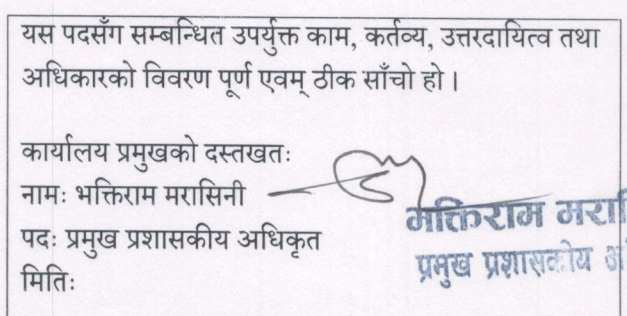 यस पदसँग सम्बन्धित उपर्युक्त काम, कर्तव्य, उत्तरदायित्व तथा
अधिकारको विवरण पूर्ण एवम् ठीक साँचो हो ।
कार्यालय प्रमुखको दस्तखतः
नामः भक्तिराम मरासिनी
पदः प्रमुख प्रशासकीय अधिकृत
मितिः
भक्तिराम
प्रमुख प्रशासकीय